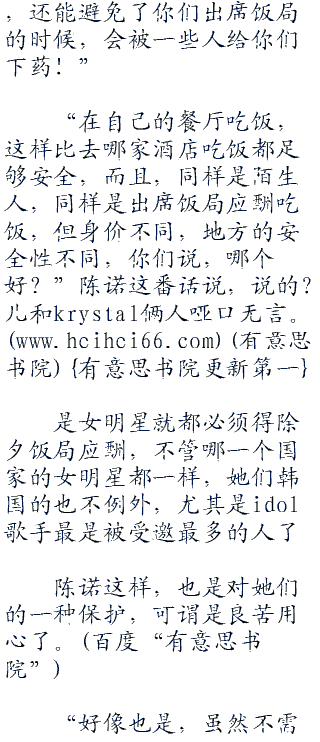 ，还能避免了你们出席饭局
的时候，会被一些人给你们
下药！”
“在自己的餐厅吃饭，
这样比去哪家酒店吃饭都足
够安全，而且，同样是陌生
人，同样是出席饭局应酬吃
饭，但身价不同，地方的安
全性不同，你们说，哪个
好？”陈诺这番话说，说的?
儿和krystal俩人哑口无言。
(www.hcihci66.com)(有意思
书院){有意思书院更新第一}
是女明星就都必须得除
夕饭局应酬，不管哪一个国
家的女明星都一样，她们韩
国的也不例外，尤其是idol
歌手最是被受邀最多的人了
陈诺这样，也是对她们
的一种保护，可谓是良苦用
心了。(百度“有意思书
院”)
“好像也是，虽然不需